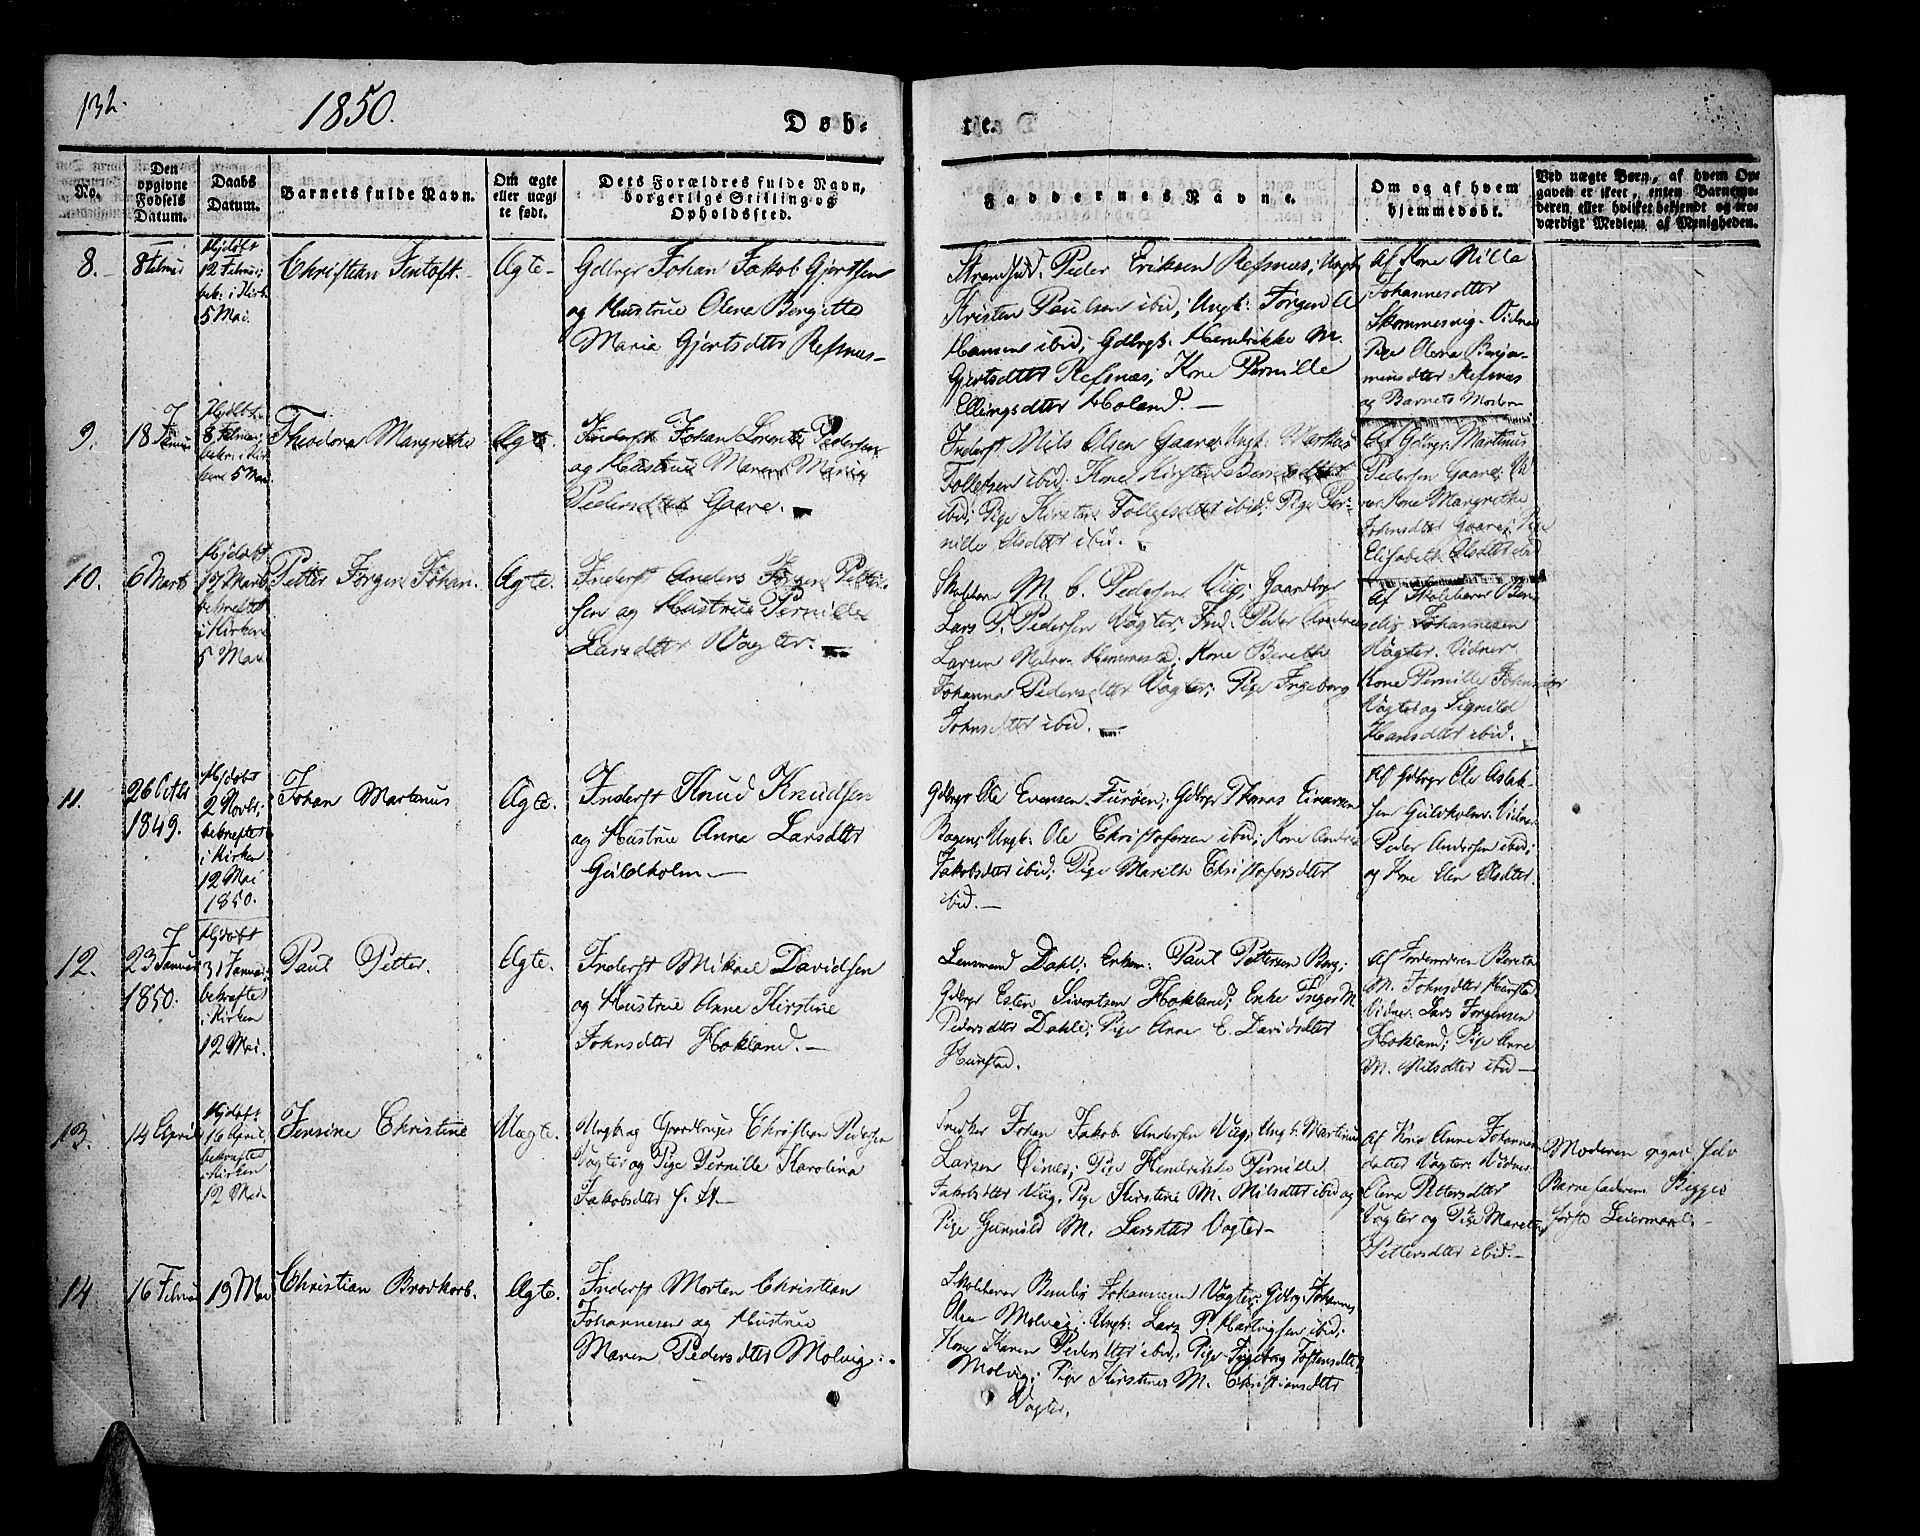 132.
1850.
Døb-
te.
No.
Den opgivne Fødsels Datum.
Daabs Datum.
Barnets fulde Navn.
Om ægte eller uægte født.
Dets Forældres fulde Navn, borgerlige Stilling og Opholdssted.
Faddernes Navne.
Om og af hvem hjemmedøbt.
Ved uægte Børn, af hvem Opgaven er skeet, enten Barnemoderen eller hvilket bekjendt og troværdigt Medlem af Menigheden.
8.
Hjdøbt
12 Februar;
bek: i Kirk
5 Mai.
Christian Tentoft.
Ægte.
Gdbrgr Johan Jakob Gjertsen
og Hustrue Olena Bergitte
Maria Gjertsdtter Refsnes
Strandsid. Peder Eriksen Refsnæs; Ungk
Kristen Paulsen ibid; Ungk: Jørgen A
Hansen ibid; Gdbrgk: Hendrikke M.
Gjertsdtter Refsnæs; Kone Pernille
Ellingsdtter Holand.
Af Kone Nille
Johannesdtter
Skommesvig. Vidner
Pige Olena Benja-
minsdtter Refsnæs
og Barnets Moder
9.
18 Januar
Hjdøbt
8 Februar,
5 Mai
Theodora Margrethe
Ægte.
Inderst Johan Lorents Pedersen
og Hustrue Maren Maria
Pedersdtter Gaare.
Inderst Nils Olsen Gaare; Ungk: Markus
Tollefsen ibid; Kone Kirsten
ibid; Pige Kirsten Tollefsdtter ibid; Pige Per-
nille Olsdtter ibid.
Af Gdbrgr. Martinus
Pedersen Gaare; Vid
ner: Kone Margrethe
Johnsdtter Gaare; Pige
Elisabeth Olsdtter ibid
10.
6 Marts
Hjdøbt
17 Marts
bekræftet
i Kirken
5 Mai
Petter Jørgen Johan.
Ægte.
Inderst Anders Jørgen Petter-
sen og Hustrue Pernille
Larsdtter Vogter.
Skolelærer M. C. Pedersen Vig; Gaardbrgr
Lars P. Pedersen Vogter; Ind. Peder Andreas
Larsen Nedre Hemmestad; Kone Berethe
Johanna Pedersdtter Vogter; Pige Ingeborg
Johnsdtter ibid.
Af Skolelærer Ben-
delix Johannesen
Vogter. Vidner.
Kone Pernille Johnsdtter
Vogter og Signild
Hansdtter ibid.
11.
26 Octbr
1849.
Hjdøbt
2 Novbr;
bekræftet
i Kirken
12 Mai
1850.
Johan Martinus
Ægte.
Inderst Knud Knudsen
og Hustrue Anne Larsdtter
Guldholm.
Gdbrgr Ole Evensen Furøen; Gdbrgr Thomas Einarsen
Bogen; Ungk: Ole Christofersen ibid; Kone Andrea
Jakobsdtter ibid; Pige Marith Christofersdtter
ibid.
Af Gdbrgr Ole Aslak-
sen Guldholm. Vidner
Peder Andersen ibid;
og Kone Elen Olsdtter
12.
23 Januar
1850.
Hjdøbt
31 Januar;
bekræftet
i Kirken
12 Mai.
Paul Petter.
Ægte.
Inderst Mikael Davidsen
og Hustrue Anne Kirstine
Johnsdtter Hokland.
Lensmand Dahl; Enkem: Paul Pettersen Berg;
Gdbrgr Esten Sivertsen Hokland; Enke Inger M
Pedersdtter Dahle; Pige Anne E. Davidsdtter
Hunstad.
Af Jordemoderen Bereta
M. Johnsdtter Harstad.
Vidner: Lars Jørgensen
Hokland; Pige Anne
M. Nilsdtter ibid
13.
14 April
Hjdøbt
16 April,
bekræftet
i Kirken
12 Mai
Jensine Christine
Uægte.
Ungk og Gaardbruger Christian Pedersen
Vogter og Pige Pernille Karolina
Jakobsdtter
Snedker Johan Jakob Andersen Vig; Ungk: Martinus
Larsen; Pige Hendrikke Pernille
Jakobsdtter Vig, Pige Kirstine M. Nilsdtter ibid og
Pige Gunnild M. Larsdtter Vogter
Af Kone Anne Johannes
datter Vogter. Vidner
Elene Pettersdtter
Vogter og Pige Maret
Pettersdtter ibid.
Moderen opgav selv
Barnefaderen. Begges
første Leiermaal.
14
16 Februar
19 Mai
Christian Brodkorb.
Ægte.
Inderst Morten Christian
Johannesen og Hustrue
Maren Pedersdtter Molvig.
Skolelærer Bendix Johannesen Vogter; Gdbrg: Johannes
Olsen Molvig; Ungk: Lars P. Hartvigsen ibid;
Kone Karen Pedersdtter ibid; Pige Ingeborg Tostensdtter
Molvig; Pige Kirstine M. Christiansdtter
Vogter.